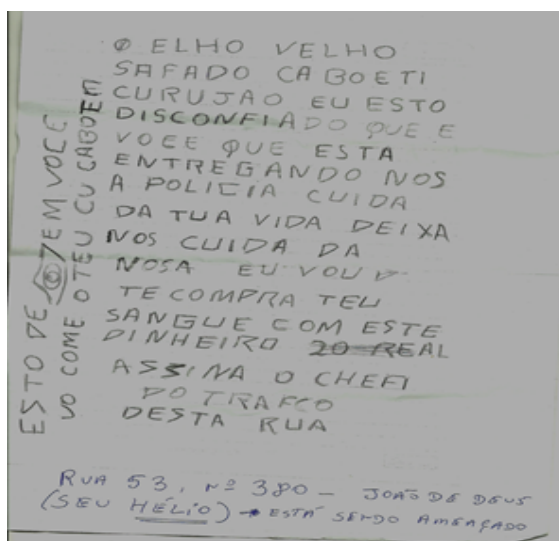 Ø ELHO VELHO
SAFADO CABOETI
CURUJAO EU ESTO
DISCONFIADO QUE E
VOCE QUE ESTA
ENTREGANDO NOS
A POLICIA CUIDA
DA TUA VIDA DEIXA
NOS CUIDA DA
NOSA EU VOU
TE COMPRA TEU
SANGUE COM ESTE
DINHEIRO 20 REAL
ASSINA O CHEFI
DO TRAFCO
DESTA RUA
ESTO DE EM VOCE
VO COME O TEU CU CABOEM
RUA 53, Nº 380 - JOÃO DE DEUS
(SEU HÉLIO) → ESTÁ SENDO AMEAÇADO